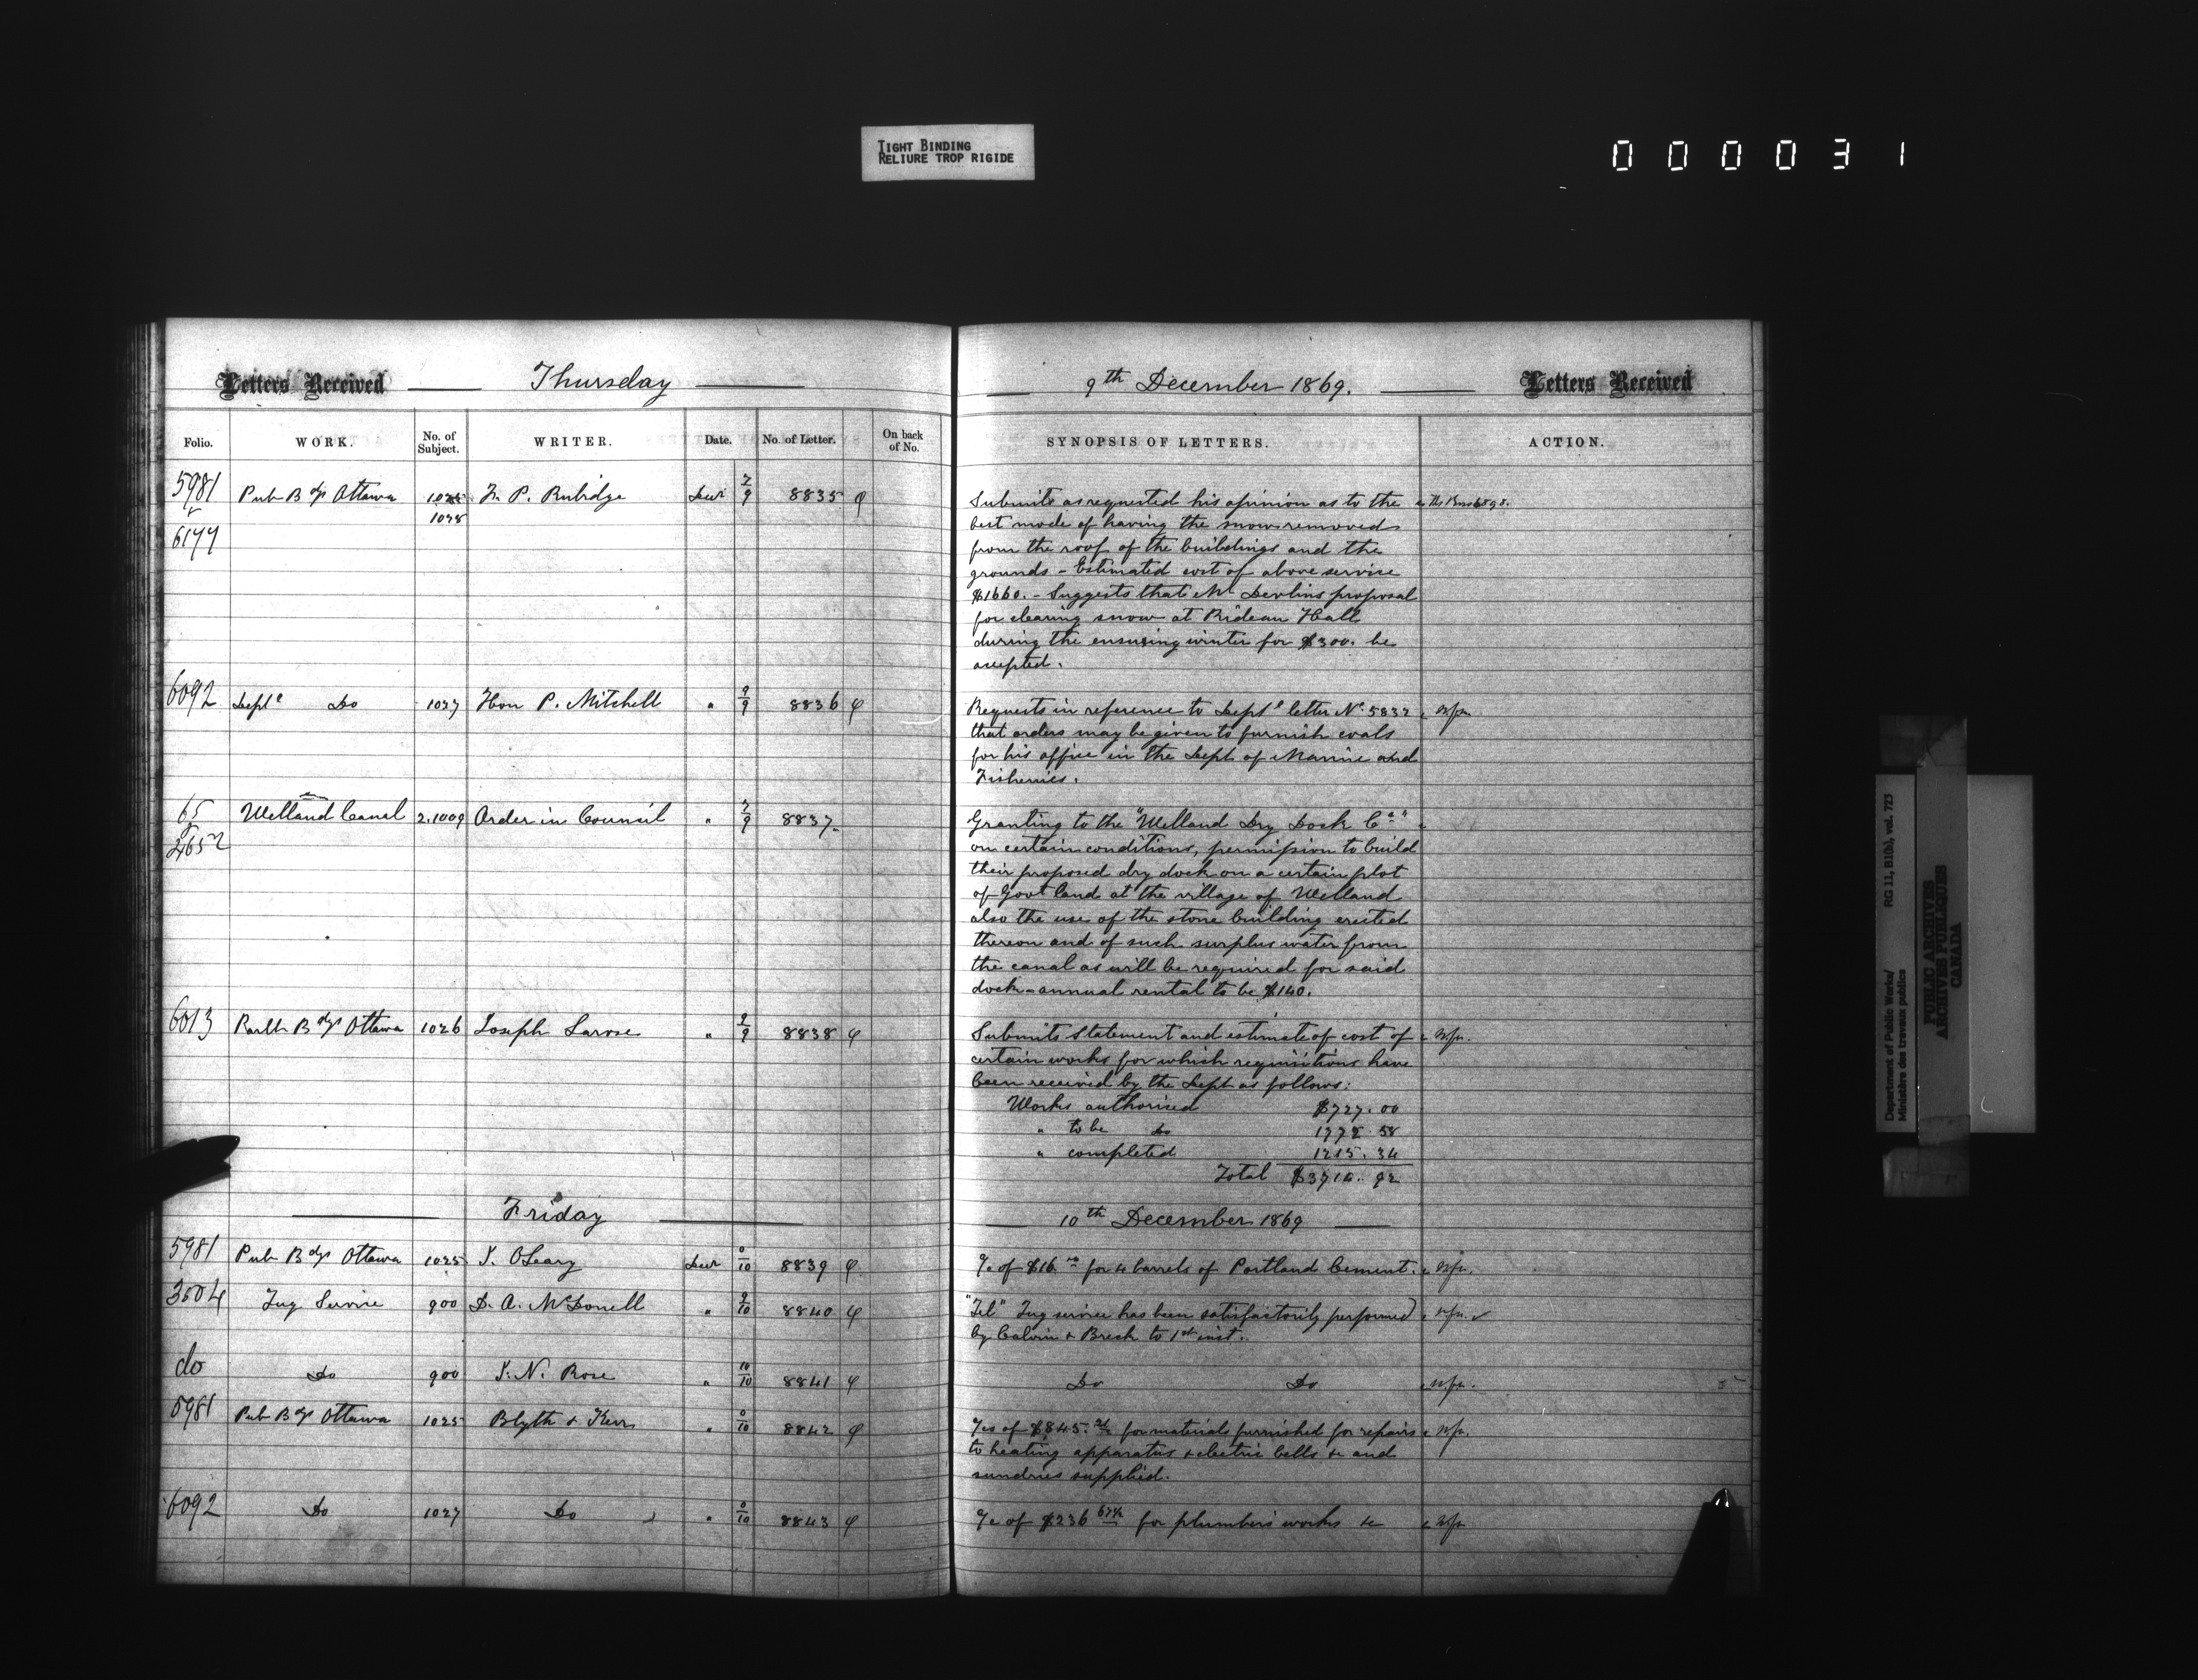 TIGHT BINDING
RELIURE TROP RIGIDE
000031
Letters Received Thursday
9th December 1869. Letters Received
Folio. WORK. No. of Subject. WRITER. Date. No. of Letter. On back of No.
SYNOPSIS OF LETTERS. ACTION.
5981 Pub Bdgs Ottawa 1025 F. P. Rubidge Decr 7/9 8835
1028
6177
Submits as requested his opinion as to the
best mode of having the snow removed
from the roof of the buildings and the
grounds - Estimated cost of above service
$1660. - Suggests that Mr Devlins proposal
for clearing snow at Rideau Hall
during the ensuing winter for $300. be
accepted.
6092 Deptl Do 1027 Hon P. Mitchell " 9/9 8836
Requests in reference to Deptl letter No. 5832
that orders may be given to furnish coals
for his office in the Dept. of Marine and
Fisheries.
65 Welland Canal 2.1009 Order in Council " 7/9 8837
2652
Granting to the "Welland Dry Dock Co."
on certain conditions, permission to build
their proposed dry dock on a certain plot
of Govt land at the village of Welland
also the use of the stone building erected
thereon and of such surplus water from
the canal as will be required for said
dock - annual rental to be $140.
6013 Parlt Bdgs Ottawa 1026 Joseph Larose " 9/9 8838
Submits statement and estimate of cost of
certain works for which requisitions have
been received by the Dept as follows:
Works authorised $727.00
" to be Do 1772 58
" completed 1215.34
Total $3714.92
Friday
10th December 1869
5981 Pub Bdgs Ottawa 1025 J. OLeary Decr 0/10 8839
a/c of $16 for 4 barrels of Portland Cement.
3504 Tug Service 900 D. A. McDonell " 9/10 8840
"Tel" Tug service has been satisfactorily performed
by Calvin & Breck to 1st inst.
do Do 900 J. N. Rose " 10/10 8841
Do Do
5981 Pub Bdgs Ottawa 1025 Blyth & Kerr " 0/10 8842
a/cs of $845. for materials furnished for repairs
to heating apparatus & electric bells &c and
sundries supplied.
6092 Do 1027 Do " 0/10 8843
a/c of $236 67½ for plumbers works &c
Department of Public Works/ RG 11, B1(b), vol. 723
Ministère des travaux publics
PUBLIC ARCHIVES
ARCHIVES PUBLIQUES
CANADA